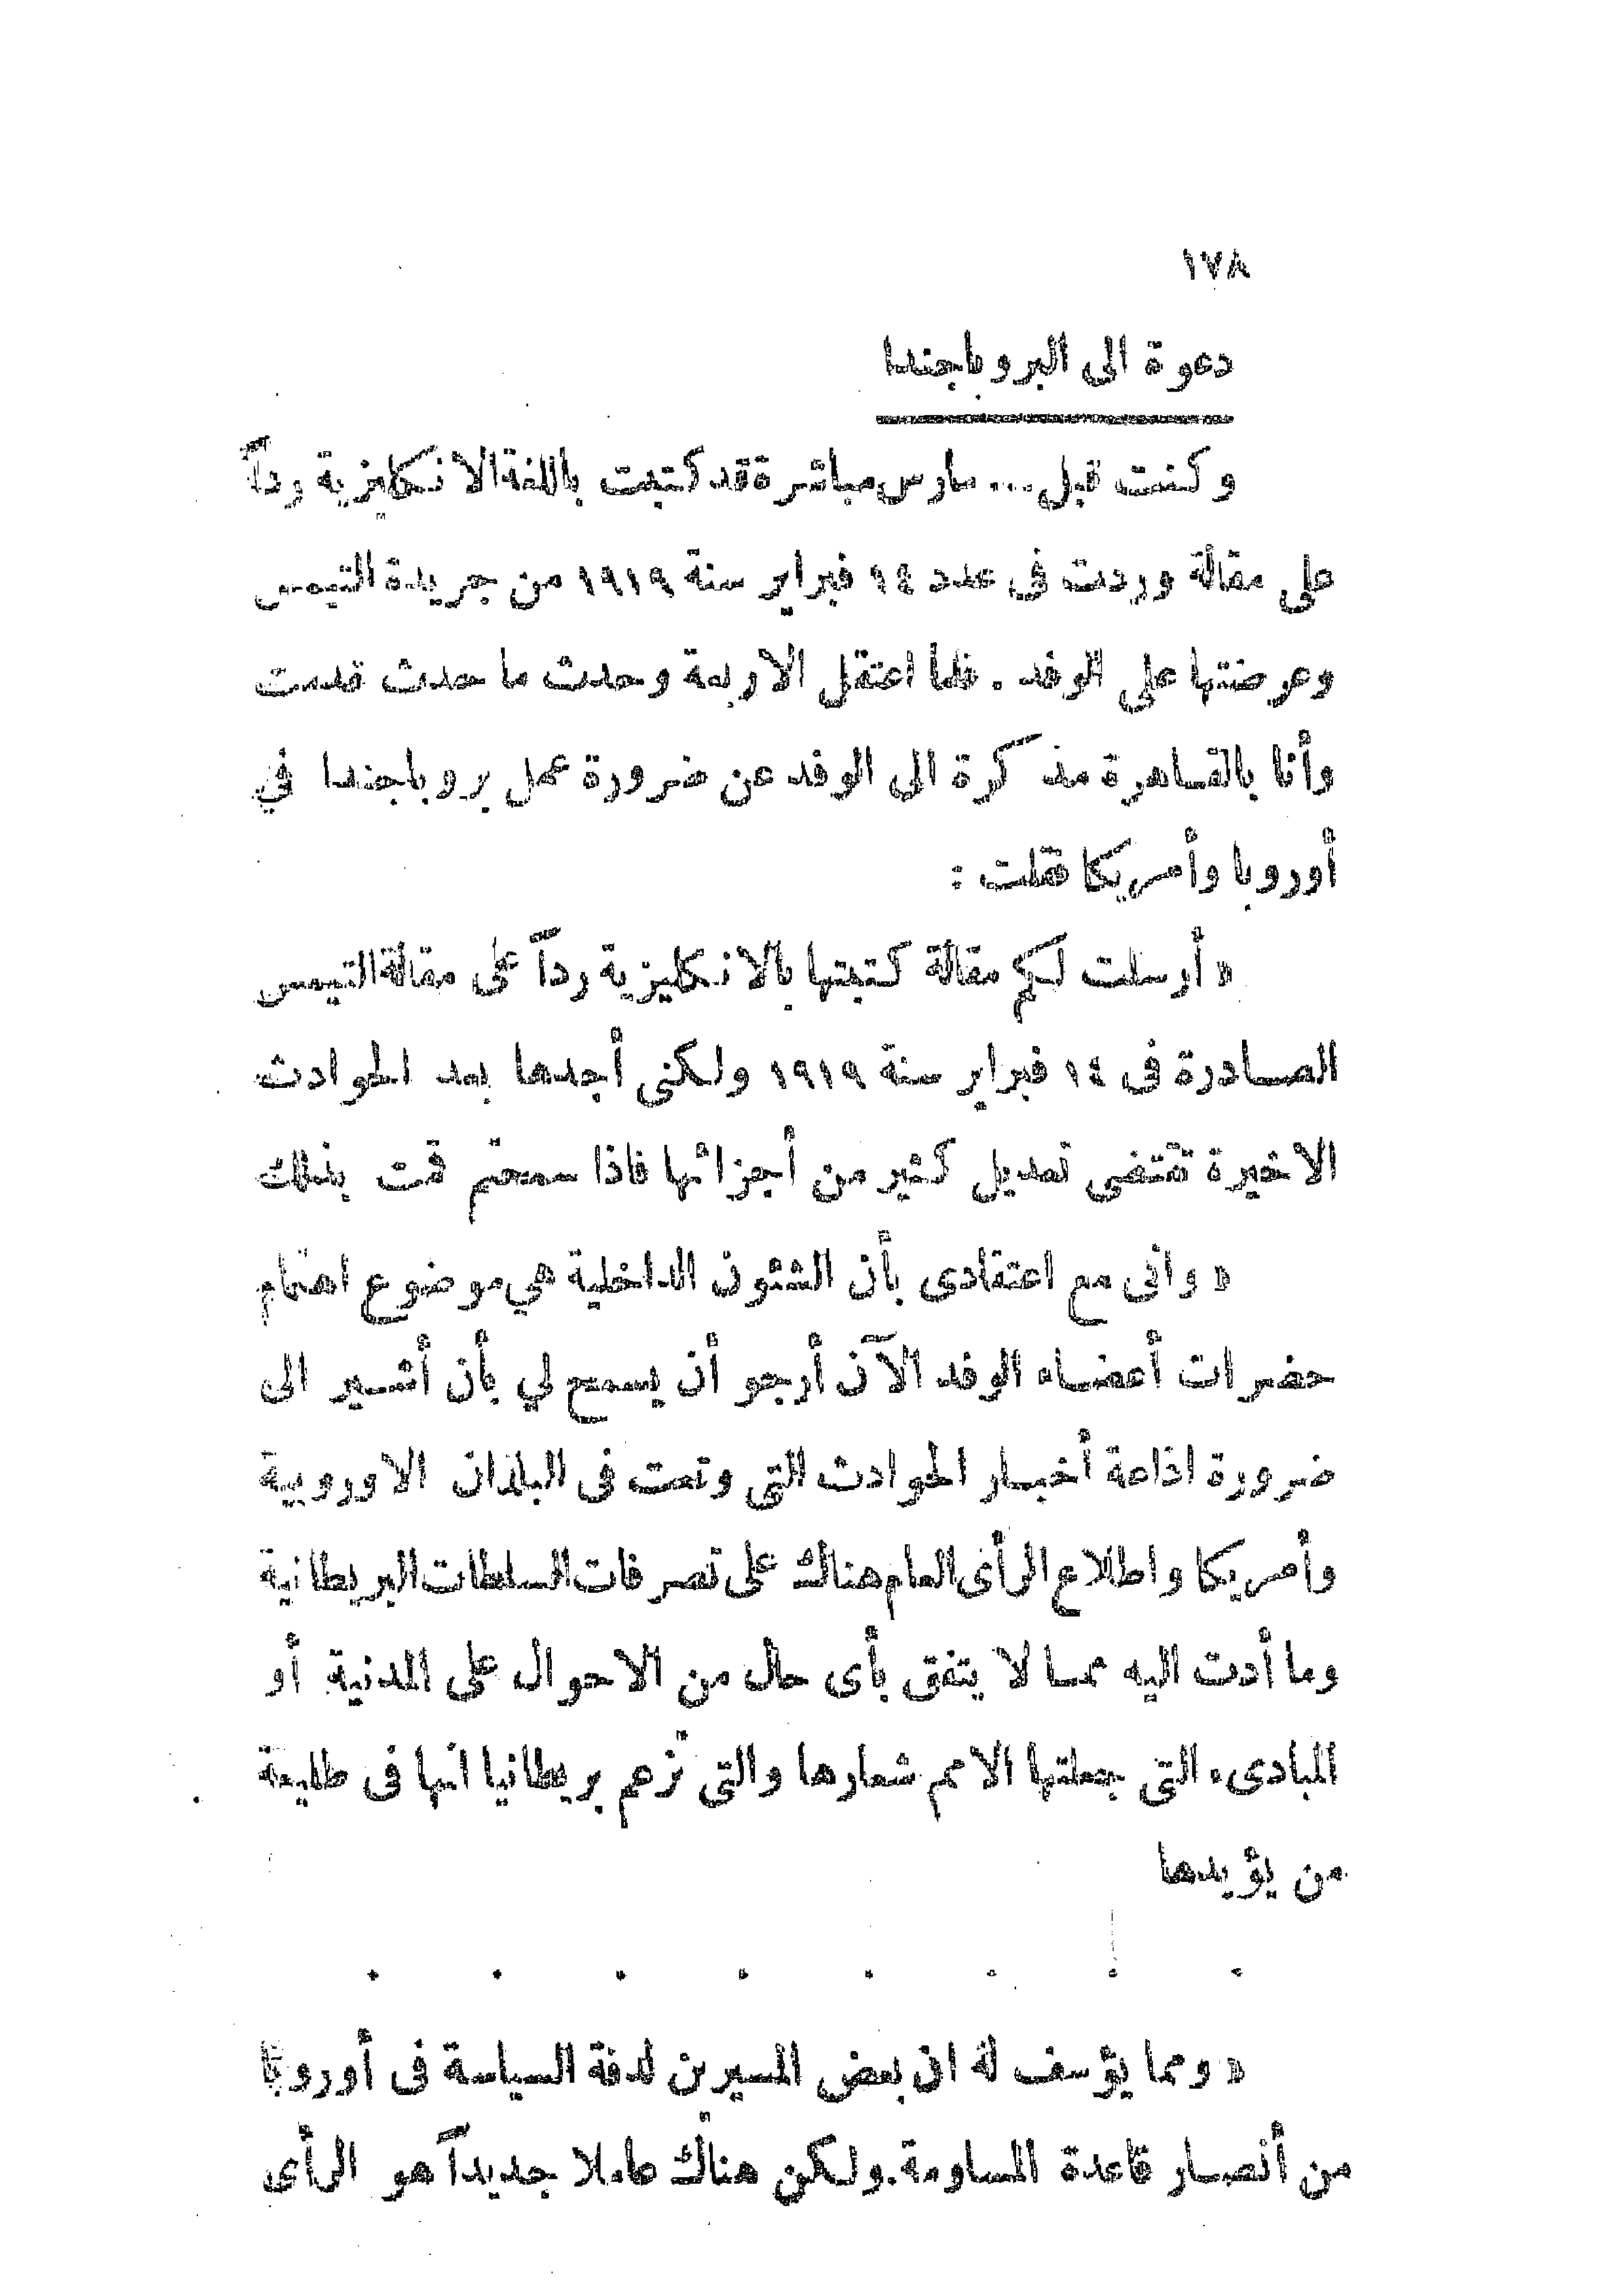 ١٧٨
دعوة الى البروباجندا
وكنت قبل ... مارس مباشرة قد كتبت باللغة الانكليزية رداً
على مقالة وردت فى عدد ١٤ فبراير سنة ١٩١٩ من جريدة التيمس
وعرضتها على الوفد . فلما اعتقل الاربعة وحدث ما حدث قدمت
وأنا بالقاهرة مذكرة الى الوفد عن ضرورة عمل بروباجندا في
أوروبا وأمريكا فقلت :
« أرسلت لكم مقالة كتبتها بالانكليزية رداً على مقالة التيمس
الصادرة فى ١٤ فبراير سنة ١٩١٩ ولكنى أجدها بعد الحوادث
الاخيرة تقتضى تعديل كثير من أجزائها فاذا سمحتم قمت بذلك
« وانى مع اعتقادى بأن الشئون الداخلية هي موضوع اهتمام
حضرات أعضاء الوفد الآن أرجو أن يسمح لي بأن أشير الى
ضرورة اذاعة أخبار الحوادث التى وقعت فى البلدان الاوروبية
وأمريكا واطلاع الرأى العام هناك على تصرفات السلطات البريطانية
وما أدت اليه مما لا يتفق بأى حال من الاحوال على المدنية أو
المبادىء التى جعلتها الامم شعارها والتى تزعم بريطانيا انها فى طليعة
من يؤيدها
. . . . . . . .
« ومما يؤسف له ان بعض المسيرين لدفة السياسة فى أوروبا
من أنصار قاعدة المساومة. ولكن هناك عاملا جديداً هو الرأى